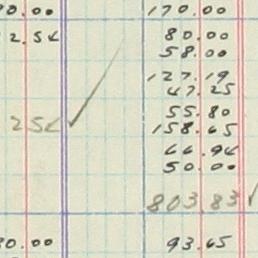 0.00 170.00
2.54 80.00
58.00
127.19
47.25
55.80
254 ✓ 158.65
66.94
50.00
803.83
0.00 93.65